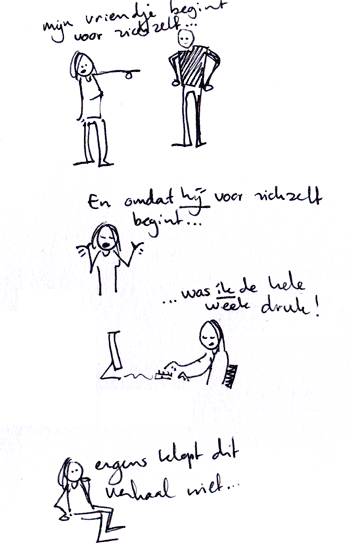 mijn vriendje begint
voor zichzelf...
En omdat hij voor zichzelf
begint...
...was ik de hele
week druk!
ergens klopt dit
verhaal niet...